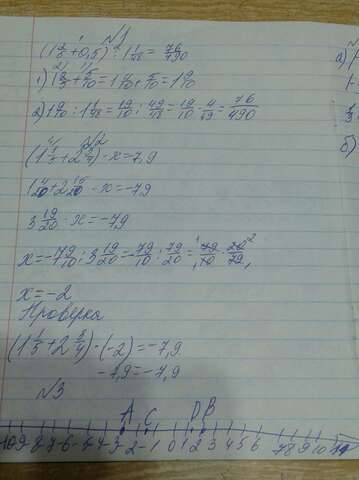 №1
(1 2/5 + 0,5) : 1 1/48 = 76/490
1) 1 2/5 + 5/10 = 1 4/10 + 5/10 = 1 9/10
2) 1 9/10 : 1 1/48 = 19/10 : 49/48 = 19/10 · 4/49 = 76/490
№2
(1 1/5 + 2 3/4) · x = 7,9
1 4/20 + 2 15/20 · x = -7,9
3 19/20 · x = -7,9
x = -7 9/10 : 3 19/20 = -79/10 : 79/20 = 79/10 · 20/79
x = -2
Проверка
(1 1/5 + 2 3/4) · (-2) = -7,9
-7,9 = -7,9
№3
A C D B
-10 -9 -8 -7 -6 -5 -4 -3 -2 -1 0 1 2 3 4 5 6 7 8 9 10
а)
б)